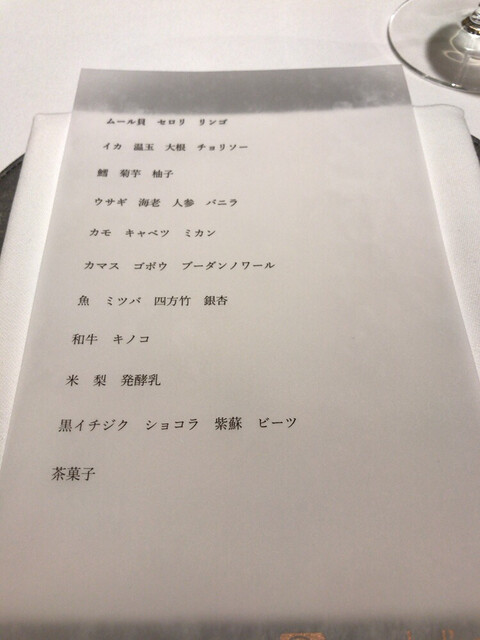 ムール貝　セロリ　リンゴ
イカ　温玉　大根　チョリソー
鱈　菊芋　柚子
ウサギ　海老　人参　バニラ
カモ　キャベツ　ミカン
カマス　ゴボウ　ブーダンノワール
魚　ミツバ　四方竹　銀杏
和牛　キノコ
米　梨　発酵乳
黒イチジク　ショコラ　紫蘇　ビーツ
茶菓子